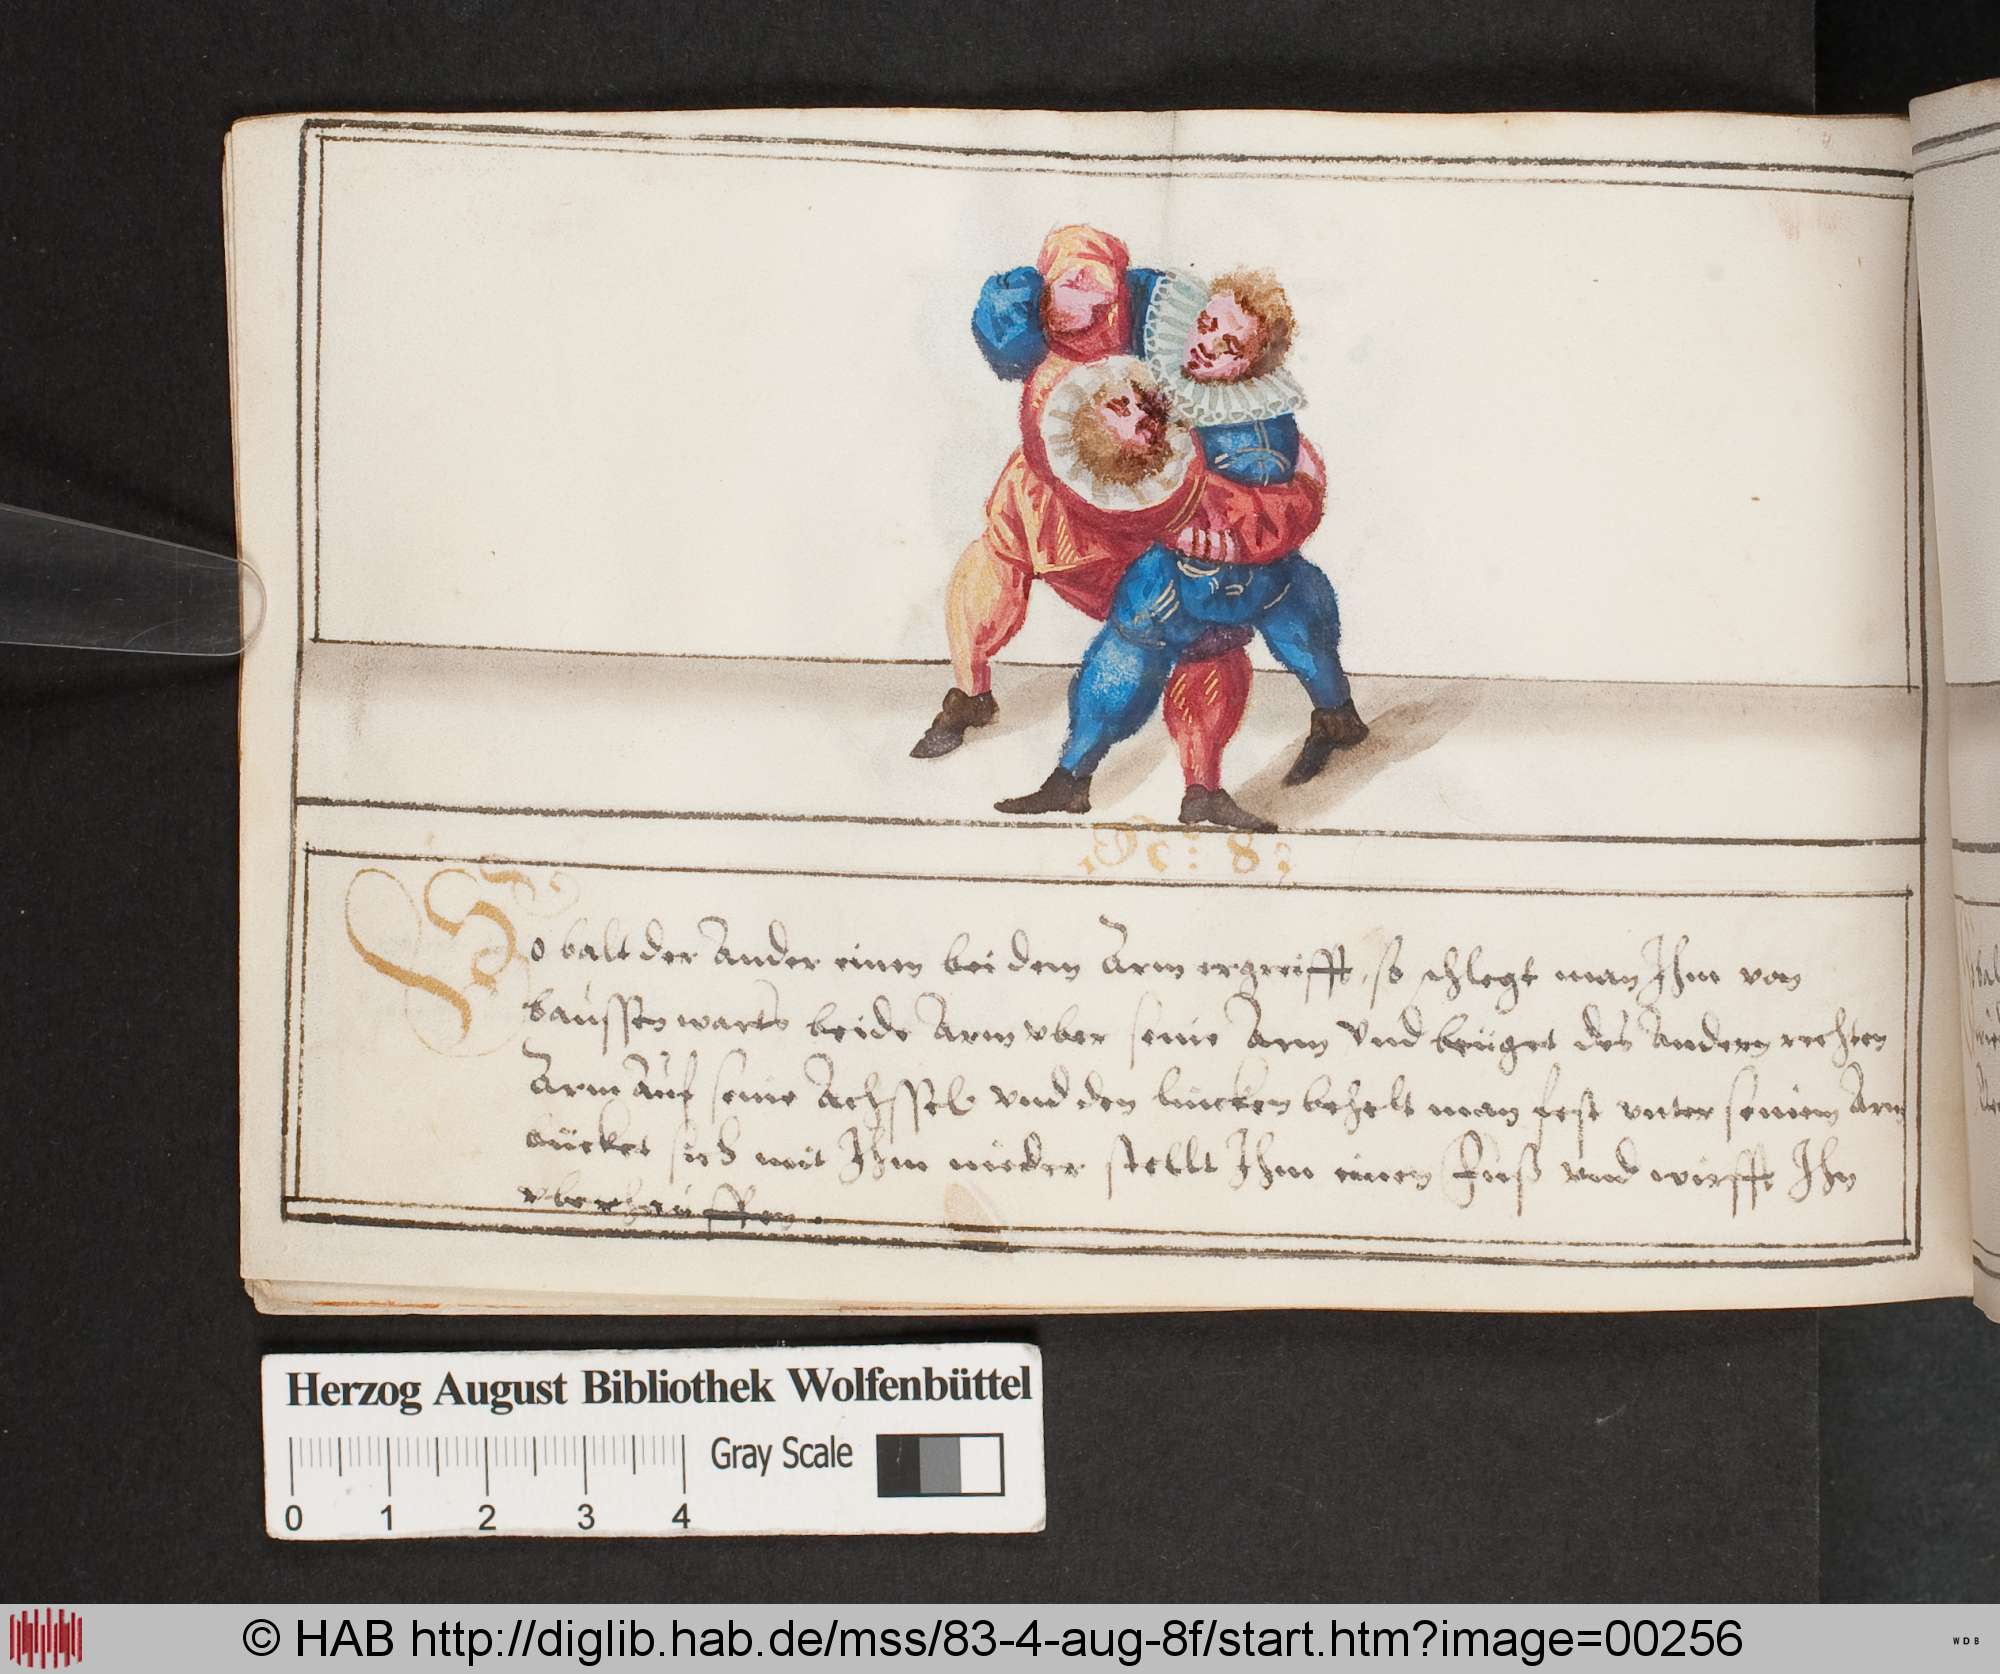 Nc: 8:
So balt der Ander einen bei dem Arm ergreifft, so schlegt man Ihm von
baussen warts beide Arm vber seine Arm Vnd beuget des Andern rechten
Arm Auf seine Achssel vnd den lincken behelt man fest vnter seinem Arm
bücket sich mit Ihm nieder stellt Ihm einen Fuß vnd wirfft Ihn
vberhauffen.
Herzog August Bibliothek Wolfenbüttel
Gray Scale
0 1 2 3 4
© HAB http://diglib.hab.de/mss/83-4-aug-8f/start.htm?image=00256
WDB